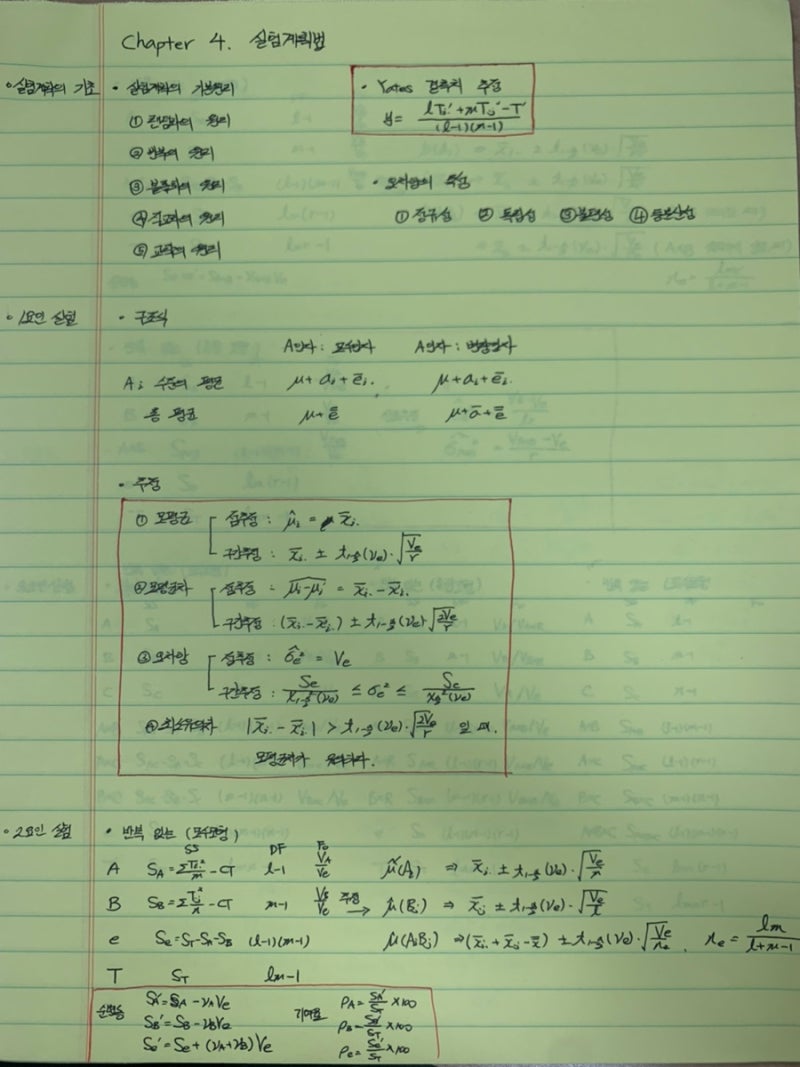 Chapter 4. 실험계획법
• 실험계획의 기초
• 실험계획의 기본원리
① 랜덤화의 원리
② 반복의 원리
③ 블록화의 원리
④ 직교화의 원리
⑤ 교락의 원리
• Yates 결측치 추정
y = (lT_i.' + mT_.j' - T') / ((l-1)(m-1))
• 오차항의 특성
① 정규성 ② 독립성 ③ 불편성 ④ 등분산성
• 1요인 실험
• 구조식
A인자 : 모수인자 A인자 : 변량인자
A_i 수준의 평균 μ + a_i + ē_i. μ + a_i + ē_i.
총 평균 μ + e̿ μ + ā + e̿
• 추정
① 모평균 점추정 : μ̂_i = x̄_i.
구간추정 : x̄_i. ± t_{1-α/2}(ν_e)·√(V_e/r)
② 모평균차 점추정 : μ_i-μ_i'^ = x̄_i. - x̄_i.
구간추정 : (x̄_i. - x̄_i.) ± t_{1-α/2}(ν_e)√(2V_e/r)
③ 오차항 점추정 : σ̂_e² = V_e
구간추정 : S_e/χ²_{1-α/2}(ν_e) ≤ σ_e² ≤ S_e/χ²_{α/2}(ν_e)
④ 최소유의차 |x̄_i. - x̄_i.| > t_{1-α/2}(ν_e)·√(2V_e/r) 일 때,
모평균차가 유의하다.
• 2요인 실험
• 반복 없는 (모수모형)
SS DF F₀
A S_A = ΣT_i.²/m - CT l-1 V_A/V_e μ̂(A_i) ⇒ x̄_i. ± t_{1-α/2}(ν_e)·√(V_e/m)
B S_B = ΣT_.j²/l - CT m-1 V_B/V_e 추정 → μ̂(B_j) ⇒ x̄_.j ± t_{1-α/2}(ν_e)·√(V_e/l)
e S_e = S_T-S_A-S_B (l-1)(m-1) μ̂(A_iB_j) ⇒ (x̄_i. + x̄_.j - x̿) ± t_{1-α/2}(ν_e)·√(V_e/n_e), n_e = lm/(l+m-1)
T S_T lm-1
순변동 S_A' = S_A - ν_AV_e 기여율 ρ_A = S_A'/S_T ×100
S_B' = S_B - ν_BV_e ρ_B = S_B'/S_T ×100
S_e' = S_e + (ν_A+ν_B)V_e ρ_e = S_e'/S_T ×100